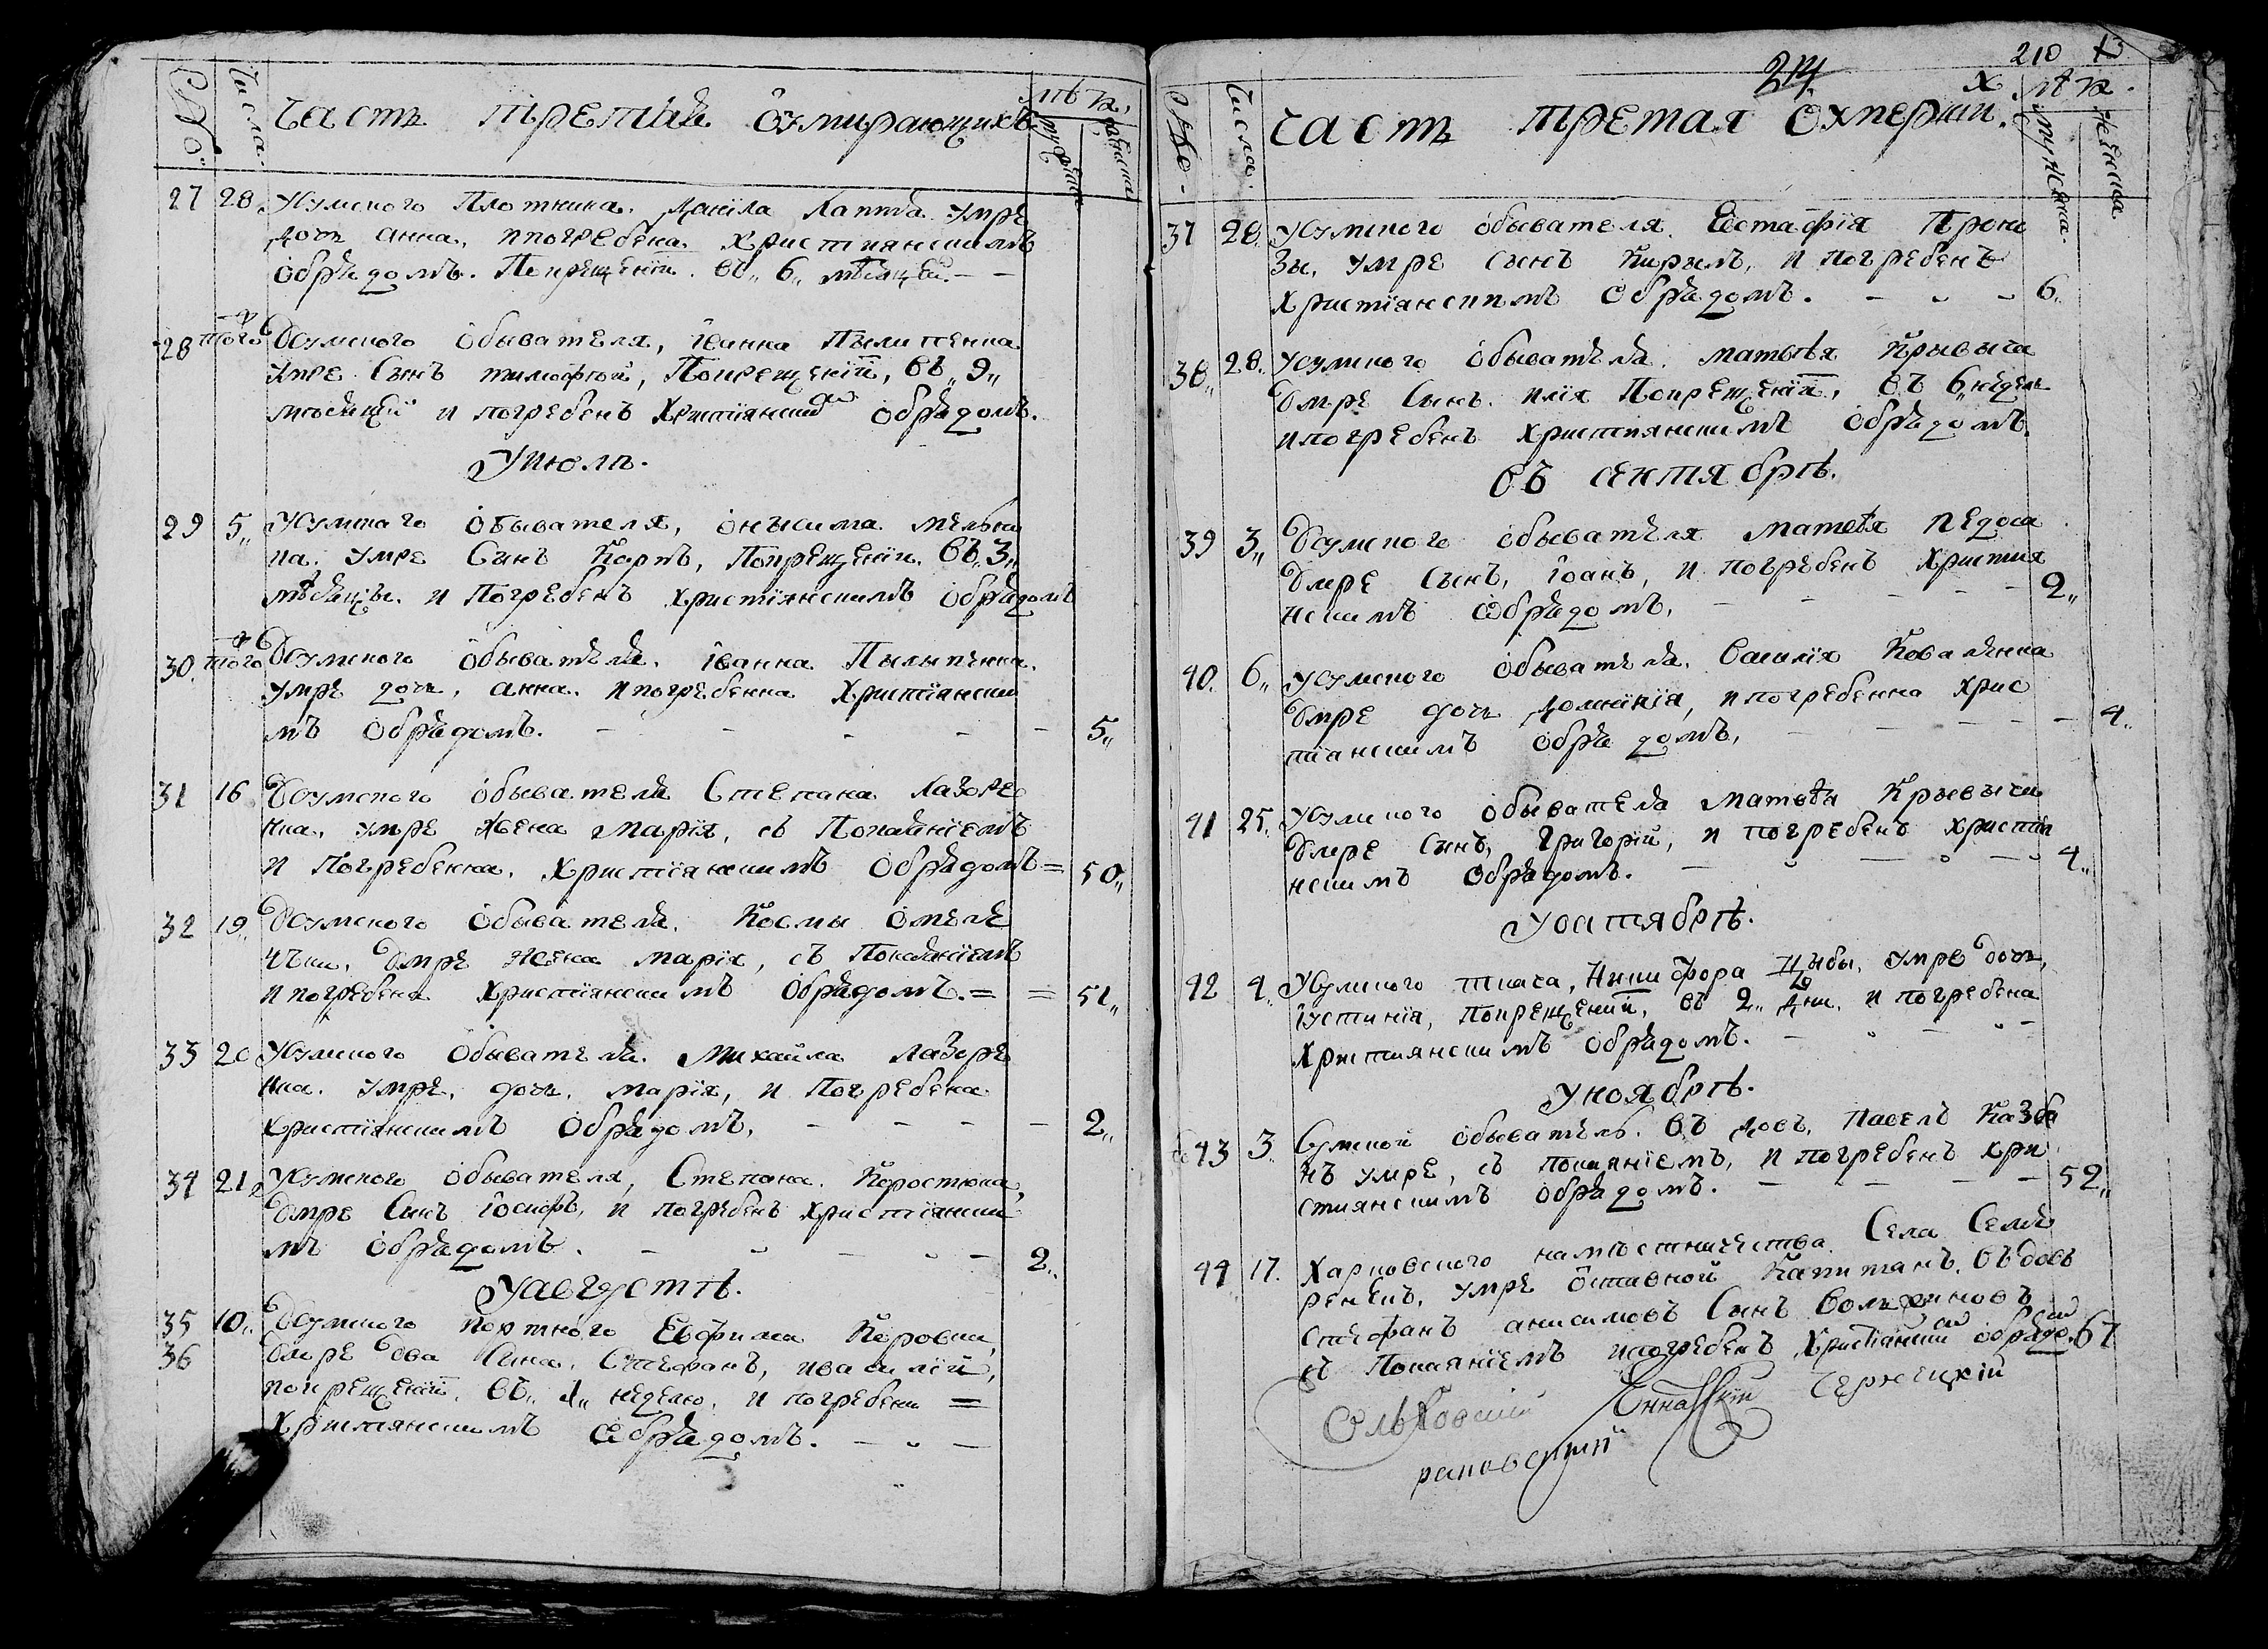 №
Числа.
Часть третіая Ѡумирающихъ
лѣта
мужеска
женска
27 28. Усумского Плотника. Данїла Лаптѣа умре
дочь анна. ппогребена. Християнскимъ
Обрядомъ. Покрещенїи. въ „6„ мѣсяцей. — —
28 того Ѵсумского Обывателя, їванна Пылипенка
умре Сынъ тимофѣй, Покрещенїи, въ „9„
мѣсяцъй и погребенъ Християнским Обрядомъ.
Уиюлѣ.
29 5„ Усумкаго Обывателя, Онысима мельни
ка. умре Сынъ Карпъ, Покрещенїи. въ „3„
мѣсяцы. и Погребенъ христїянскимъ Обрядомъ
30. того Ѵсумского Обывателя. їванна Пылыпенка.
умре дочь. анна. ипогребенна Христїянски
мъ Обрядомъ. — — — — — 5„
31 16 Ѵсумского Обывателя Степана Лазоре
нка, умре жена Марїя, съ Покаянїемъ
и Погребенна. Христїянскимъ Обрядомъ = 50„
32 19.. Ѵсумского Обывателя. Космы Омеле
чъки. Ѵмре жена марїя, съ Покаянїемъ
ипогребена Христїянскимъ Обрядомъ. = = 51„
33 20 Усумского Обывателя. Михаила Лазоре
нка. умре. дочь. марїя, и Погребена
христїянскимъ Обрядомъ. — — — — 2„
34 21„ Усумского обывателя, Степана. Коростюка,
Ѵмре Сынъ їосифъ, и погребенъ христїянски
мъ Обрядомъ. — „ — „ — 2„
Уавгустѣ.
35 10„ Ѵсумского Портного Евфима Коровки,
36 Ѵмре два Сина. Стефанъ, ивасилїй,
покрещенїи. въ „1„ неделю. и погребени =
Християнскимъ Обрядомъ. — „ —
214
210
№
Числа.
Часть третая Ѡхмерши.
лѣта.
мужеска.
женска
37 28. Усумского Обывателя. Евстафїя Прока
зы, умре сынъ Кирылъ, и погребенъ
Христїянскимъ Обрядомъ. — „ — 6„
38„ 28.. Усумского Обывателя. матвѣя Крывыча
Ѵмре Сынъ. илїя Покрещенїи, въ 6„ недел
ипогребенъ Християнскимъ Обрядомъ.
въ сентябрѣ.
39 3„ Ѵсумского Обывателя Матвѣя педоса
Ѵмре Сынъ, їоанъ, и погребенъ Христия
нскимъ Обрядомъ, — — — — — 2„
40. 6„ Усумского Обывателя. Василїя Коваленка
Ѵмре дочь Домникїя, ипогребенна хрис
тїанскимъ Обрядомъ, — — — — — 4„
41 25„ Усумского Обывателя Матвѣя Крывычи
Ѵмре Сынъ, Григорїй, и погребенъ христїя
нскимъ Обрядомъ. — „ — „ — 4„
Уоктябрѣ.
42 4„ Усумского ткача, Никифора Цыбы, умре дочь,
їустинїя, покрещенїи, въ 2„ дни, и погребена
Християнскимъ Обрядомъ. — „ — „ —
Уноябрѣ.
43 3„ Сумской обыватель. въдовъ. Павелъ Казба
нъ умре, съ покаянїемъ, и погребенъ хри
стиянскимъ Обрядомъ. — — — — — 52„
44 17. Харковского намѣстничества. Села Семе
ренекъ, умре Ѡставной Капитанъ. въдовъ
Стефанъ анисимовъ Сынъ
съ Покаянїемъ ипогребенъ Христїянским обрядо. 67